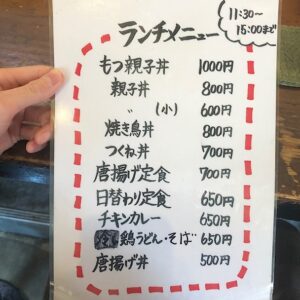 11:30〜
15:00まで
ランチメニュー
もつ親子丼 1000円
親子丼 800円
〃 (小) 600円
焼き鳥丼 800円
つくね丼 700円
唐揚げ定食 700円
日替わり定食 650円
チキンカレー 650円
鶏うどん・そば 650円
唐揚げ丼 500円